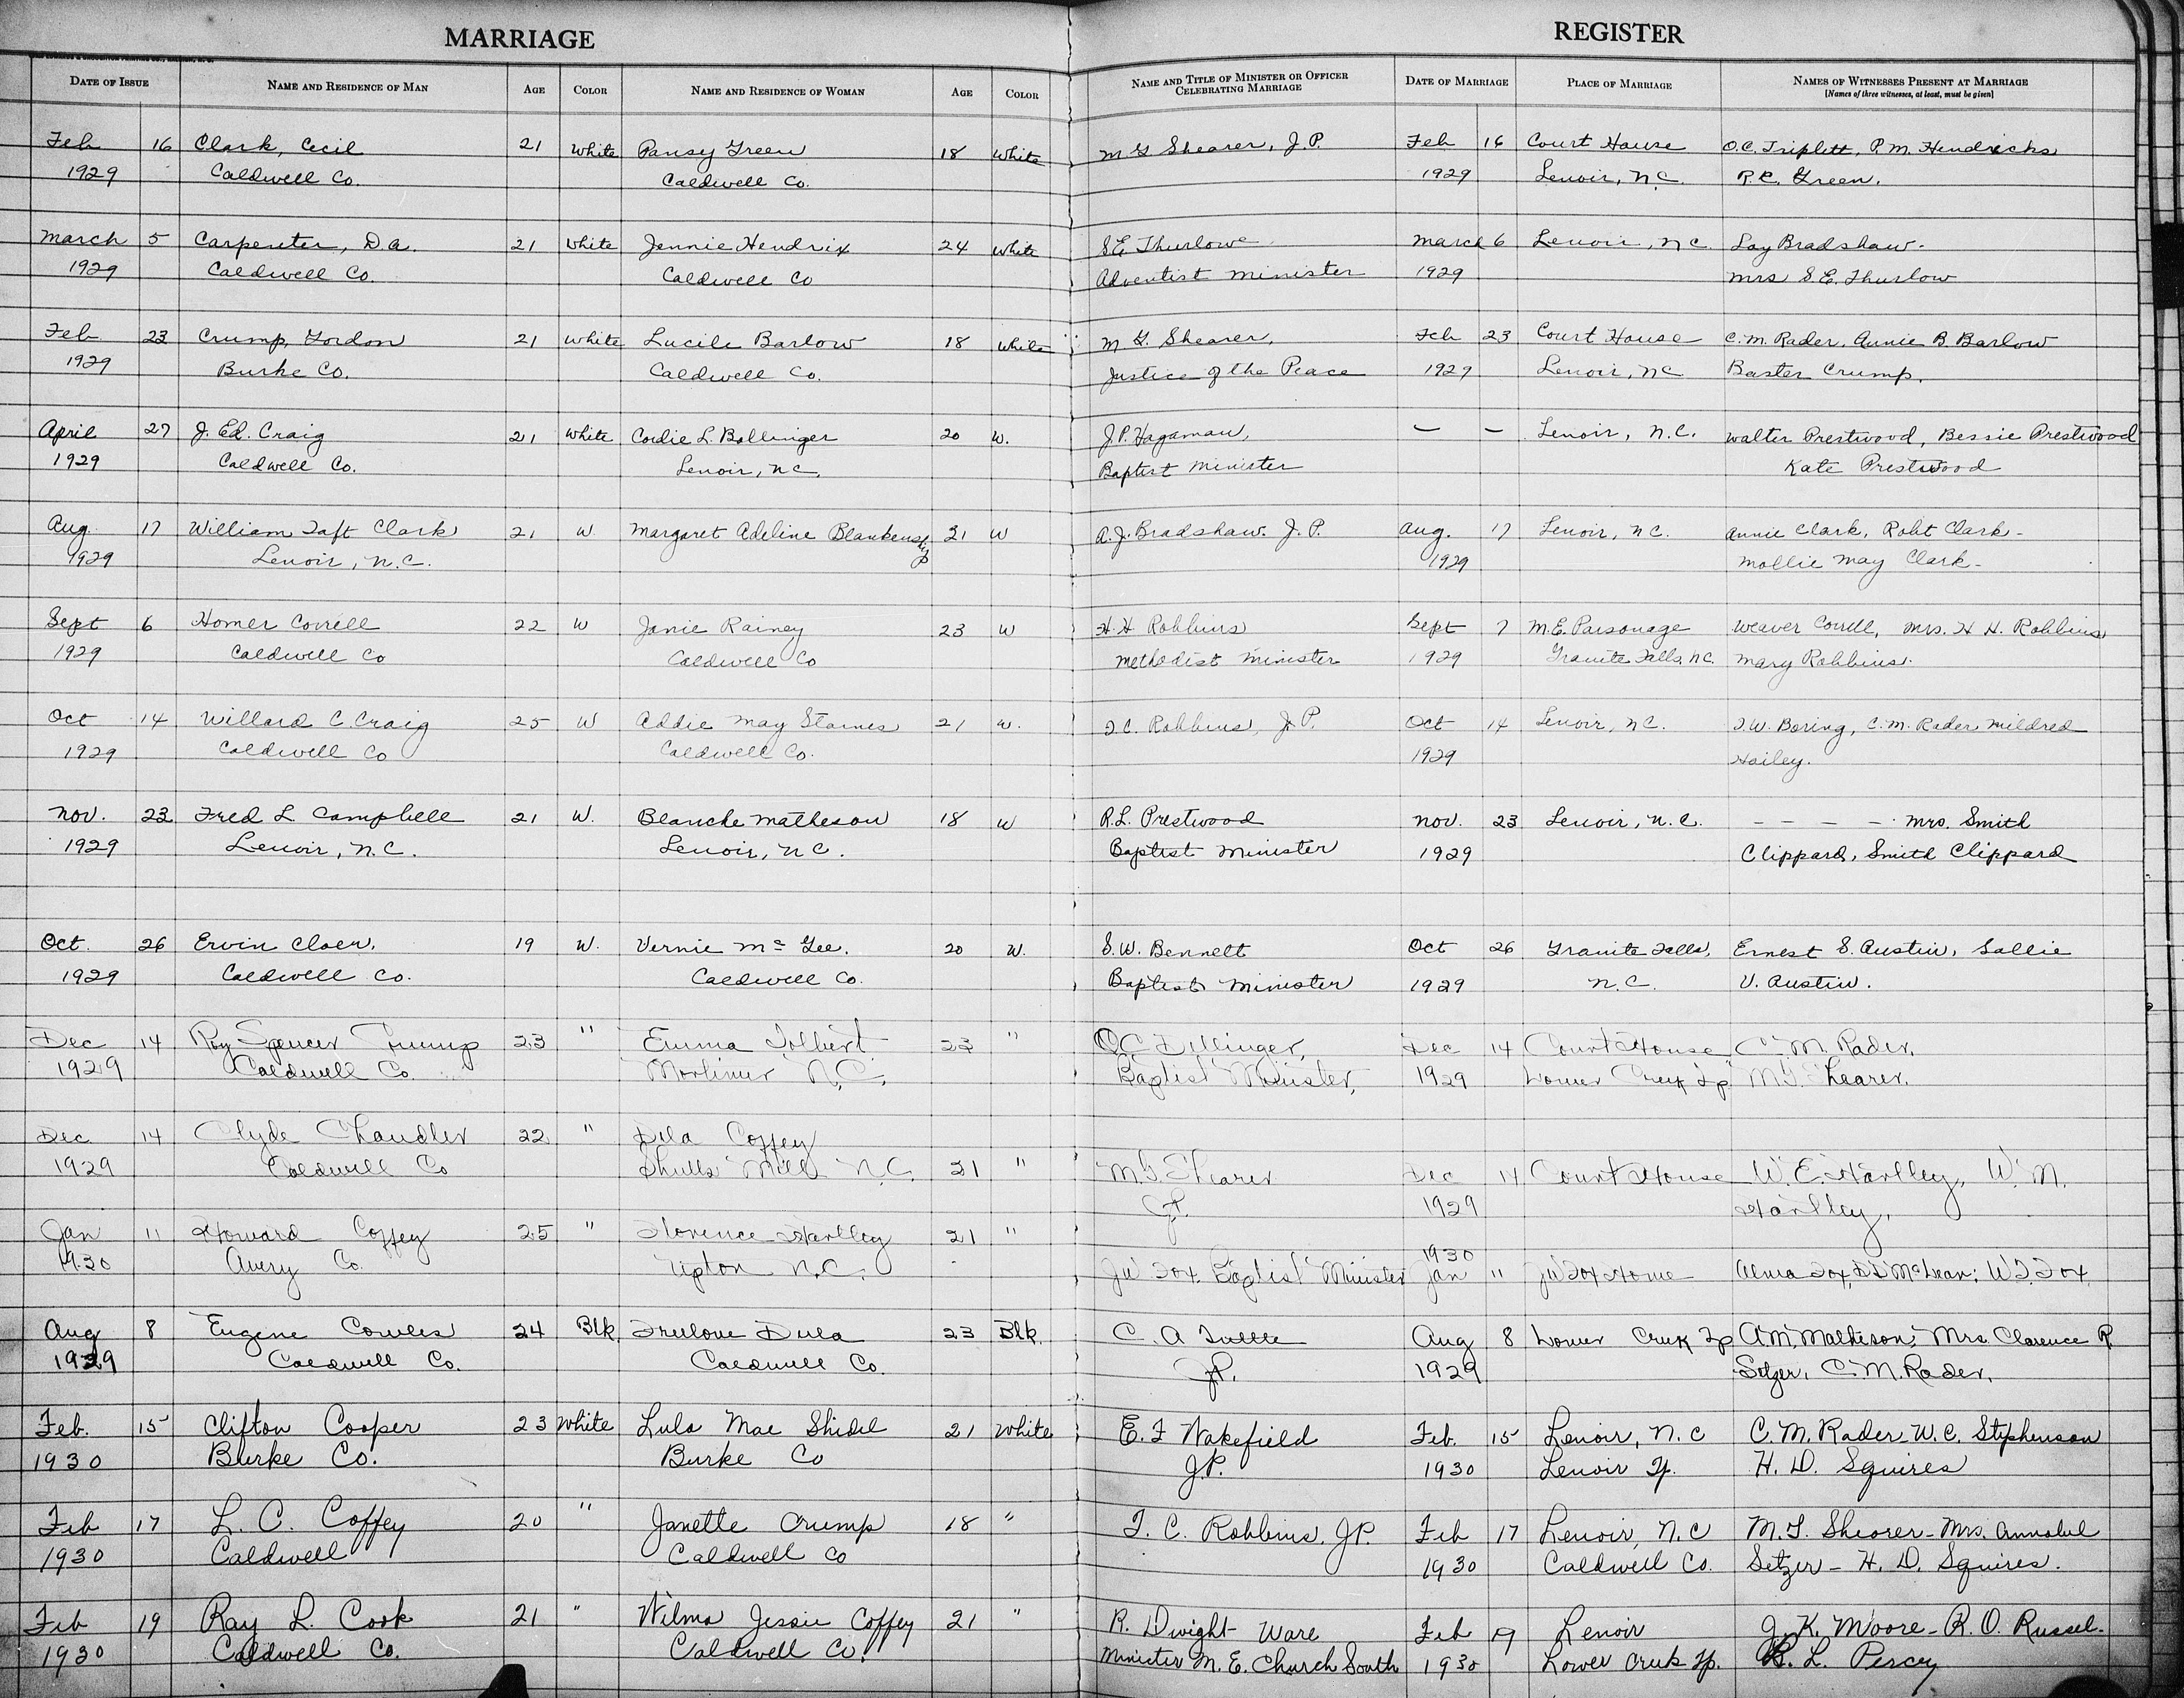 MARRIAGE REGISTER
DATE OF ISSUE NAME AND RESIDENCE OF MAN AGE COLOR NAME AND RESIDENCE OF WOMAN AGE COLOR NAME AND TITLE OF MINISTER OR OFFICER CELEBRATING MARRIAGE DATE OF MARRIAGE PLACE OF MARRIAGE NAMES OF WITNESSES PRESENT AT MARRIAGE
[Names of three witnesses, at least, must be given]
Feb 16 Clark, Cecil 21 White Pansy Green 18 White M G Shearer, J.P. Feb 16 Court House O.C. Triplett, P.M. Hendricks
1929 Caldwell Co. Caldwell Co. 1929 Lenoir, N.C. R.C. Green.
March 5 Carpenter, D.A. 21 White Jennie Hendrix 24 White S.E. Thurlow March 6 Lenoir, N.C. Loy Bradshaw.
1929 Caldwell Co. Caldwell Co Adventist Minister 1929 Mrs S.E. Thurlow
Feb 23 Crump, Gordon 21 White Lucile Barlow 18 White M G. Shearer, Feb 23 Court House C.M. Rader, Annie B. Barlow
1929 Burke Co. Caldwell Co. Justice of the Peace 1929 Lenoir, NC Baxter Crump.
April 27 J. Ed. Craig 21 White Cordie L. Bollinger 20 W. J.P. Hagaman, — — Lenoir, N.C. Walter Prestwood, Bessie Prestwood
1929 Caldwell Co. Lenoir, NC. Baptist Minister Kate Prestwood
Aug. 17 William Taft Clark 21 W. Margaret Adeline Blankenship 21 W A.J. Bradshaw. J.P. Aug. 17 Lenoir, N.C. Annie Clark, Robt Clark-
1929 Lenoir, N.C. 1929 Mollie May Clark-
Sept 6 Homer Correll 22 W Janie Rainey 23 W H.H Robbins Sept 7 M.E. Parsonage Weaver Correll, Mrs. H H. Robbins
1929 Caldwell Co Caldwell Co Methodist Minister 1929 Granite Falls, NC. Mary Robbins.
Oct 14 Willard C. Craig 25 W Addie May Starnes 21 W. T.C. Robbins, J.P. Oct 14 Lenoir, N.C. T.W. Boring, C.M. Rader, Mildred
1929 Caldwell Co Caldwell Co. 1929 Hailey.
Nov. 23 Fred L. Campbell 21 W. Blanche Matheson 18 W R.L. Prestwood Nov. 23 Lenoir, N.C. – – – – Mrs. Smith
1929 Lenoir, N.C. Lenoir, N.C. Baptist Minister 1929 Clippard, Smith Clippard
Oct. 26 Ervin Cloer. 19 W. Vernie McGee. 20 W. S.W. Bennett Oct 26 Granite Falls, Ernest S. Austin, Sallie
1929 Caldwell Co. Caldwell Co. Baptist Minister 1929 N.C. V. Austin.
Dec 14 Roy Spencer Crump 23 " Emma Tolbert 23 " O.C. Dillinger, Dec 14 Court House C.M. Rader,
1929 Caldwell Co. Mortimer N.C. Baptist Minister, 1929 Lower Creek Tp M.G. Shearer.
Dec 14 Clyde Chandler 22 " Dila Coffey
1929 Caldwell Co Shulls Mill N.C. 21 " M.G. Shearer Dec 14 Court House W.E. Hartley, W.M.
J.P. 1929 Hartley,
Jan 11 Howard Coffey 25 " Florence Hartley 21 " 1930
1930 Avery Co. Upton N.C. J W Fox, Baptist Minister Jan 11 J W Fox Home Alma Fox, D.D. McLean; W.F. Fox
Aug 8 Eugene Cowles 24 Blk. Trulove Dula 23 Blk. C. A Tuttle Aug 8 Lower Creek Tp A.M. Matheson, Mrs. Clarence R
1929 Caldwell Co. Caldwell Co. J.P. 1929 Setzer, C.M. Rader,
Feb. 15 Clifton Cooper 23 White Lula Mae Shidel 21 White E. F Wakefield Feb. 15 Lenoir, N.C C. M. Rader - W. C. Stephenson
1930 Burke Co. Burke Co J.P. 1930 Lenoir Tp. H. D. Squires
Feb 17 L. C. Coffey 20 " Janette Crump 18 " T. C. Robbins, J.P. Feb 17 Lenoir, N.C M. G. Shearer - Mrs. Annabel
1930 Caldwell Caldwell Co 1930 Caldwell Co. Setzer - H. D. Squires.
Feb 19 Ray L. Cook 21 " Wilma Jessie Coffey 21 " R. Dwight Ware Feb 19 Lenoir J. K. Moore - R. O. Russel-
1930 Caldwell Co. Caldwell Co. Minister M. E. Church South 1930 Lower Creek Tp. B. L. Percy